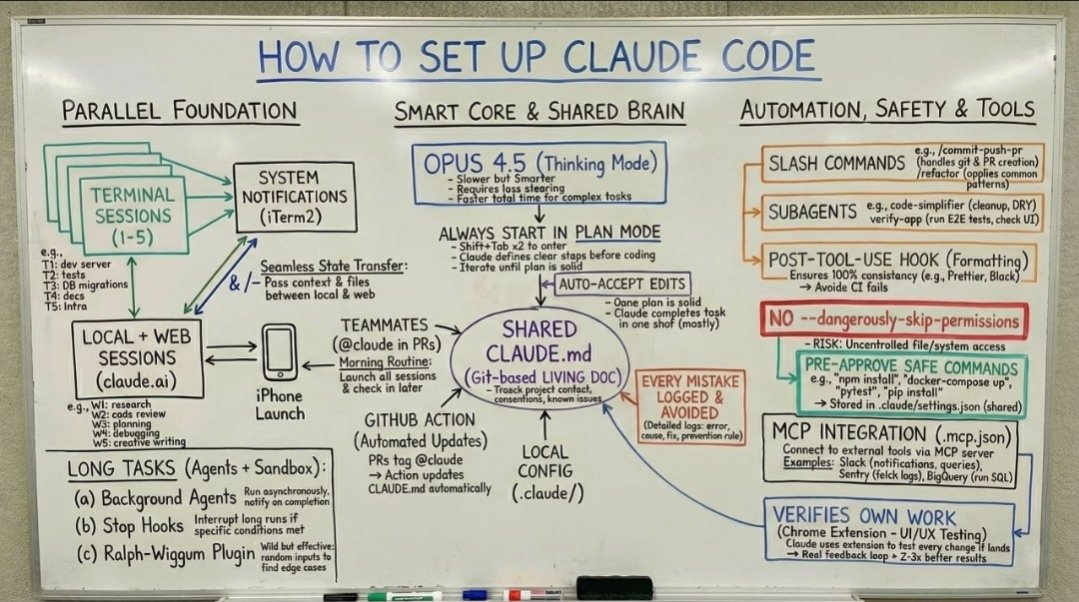 HOW TO SET UP CLAUDE CODE
PARALLEL FOUNDATION
TERMINAL
SESSIONS
(1-5)
SYSTEM
NOTIFICATIONS
(iTerm2)
e.g.,
T1: dev server
T2: tests
T3: DB migrations
T4: decs
T5: Intra
&/-
Seamless State Transfer:
Pass context & files
between local & web
LOCAL + WEB
SESSIONS
(claude.ai)
iPhone
Launch
e.g., W1: research
W2: cods review
W3: planning
W4: debugging
W5: creative writing
LONG TASKS (Agents + Sandbox):
(a) Background Agents
Run asynchronously,
notify on completion
(b) Stop Hooks
Interrupt long runs if
specific conditions met
(c) Ralph-Wiggum Plugin
Wild but effective:
random inputs to
find edge cases
SMART CORE & SHARED BRAIN
OPUS 4.5 (Thinking Mode)
- Slower but Smarter
- Requires loss steering
- Faster total time for complex tasks
ALWAYS START IN PLAN MODE
- Shift+Tab x2 to onter
- Claude defines clear staps before coding
- Iterate until plan is solid
AUTO-ACCEPT EDITS
- Oane plan is solid
- Claude completes tosk
in one shof (mostly)
TEAMMATES
(@claude in PRs)
Morning Routine:
Launch all sessions
& check in later
SHARED
CLAUDE.md
(Git-based LIVING DOC)
- Troack project contact,
consentions, known issues
EVERY MISTAKE
LOGGED &
AVOIDED
(Detailed logs: error,
cause, fix, prevention rule)
GITHUB ACTION
(Automated Updates)
PRs tag @claude
→ Action updates
CLAUDE.md automatically
LOCAL
CONFIG
(.claude/)
AUTOMATION, SAFETY & TOOLS
SLASH COMMANDS
e.g., /commit-push-pr
(handles git & PR creation)
/refactor (opplies common
patterns)
SUBAGENTS
e.g., code-simplifier (cleanup, DRY)
verify-app (run E2E tests, check UI)
POST-TOOL-USE HOOK (Formatting)
Ensures 100% consistancy (e.g., Prettier, Black)
→ Avoide CI fails
NO --dangerously-skip-permissions
- RISK: Uncontrolled file/system access
PRE-APPROVE SAFE COMMANDS
e.g., "npm install", "docker-compose up",
"pytest", "pip install"
→ Stored in .claude/settings.json (shared)
MCP INTEGRATION (.mcp.json)
Connect to external tools via MCP server
Examples: Slack (notifications, queries),
Sentry (felck logs), BigQuery (run SQL)
VERIFIES OWN WORK
(Chrome Extension - UI/UX Testing)
Claude uses extension to test every change if lands
→ Real feedback loop > Z-3x better results